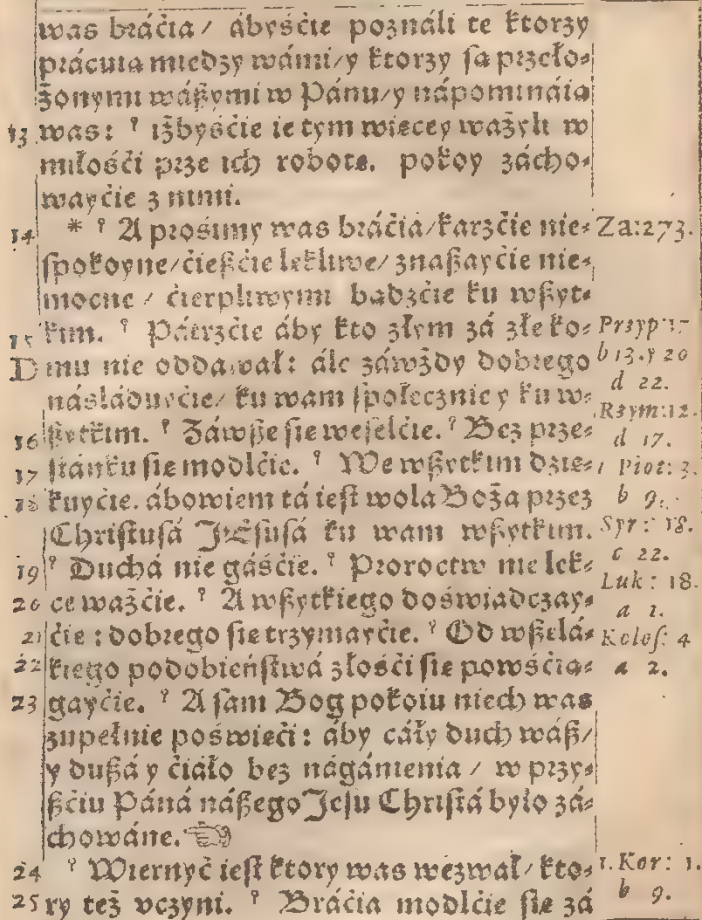 was bráćia / ábyśćie poználi te ktorzy
prácuia miedzy wámi/y ktorzy sa przeło-
żonymi wászymi w Pánu/y nápomináia
13 was: ꝰ iżbyśćie ie tym wiecey ważyli w
miłośći prze ich robote. pokoy zácho-
wayćie z nimi.
14 * ꝰ A prośimy was bráćia/karzćie nie- Za:273.
spokoyne/ćieszćie lekliwe/ znaszayćie nie-
mocne / ćierpliwymi badzćie ku wszyt-
15 kim. ꝰ Pátrzćie áby kto złym zá złe ko- Przyp:17
D mu nie oddawał: ále záwżdy dobrego b 13. y 20
násláduyćie/ ku wam społecznie y ku w- d 22.
16 szytkim. ꝰ Záwsze sie weselćie. ꝰ Bez prze- Rzym:12. d 17.
17 stánku sie modlćie. ꝰ We wszytkim dzie- 1 Piot: 3.
18 kuyćie. ábowiem tá iest wola Boża przez b 9.
Christusá JEsusá ku wam wszytkim. Syr: 18.
19 ꝰ Duchá nie gáśćie. ꝰ Proroctw nie lek- c 22.
20 ce ważćie. ꝰ A wszytkiego doświadczay- Luk: 18. a 1.
21 ćie : dobrego sie trzymayćie. ꝰ Od wszelá- Kolos: 4
22 kiego podobieństwá złośći sie powśćia- a 2.
23 gayćie. ꝰ A sam Bog pokoiu niech was
zupełnie poświeći: áby cáły duch wász/
y duszá y ćiáło bez nágánienia / w przy-
szćiu Páná nászego Jesu Christá było zá-
chowáne. ☜
24 ꝰ Wiernyć iest ktory was wezwał/ kto- 1. Kor: 1.
25 ry też vczyni. ꝰ Bráćia modlćie sie zá b 9.